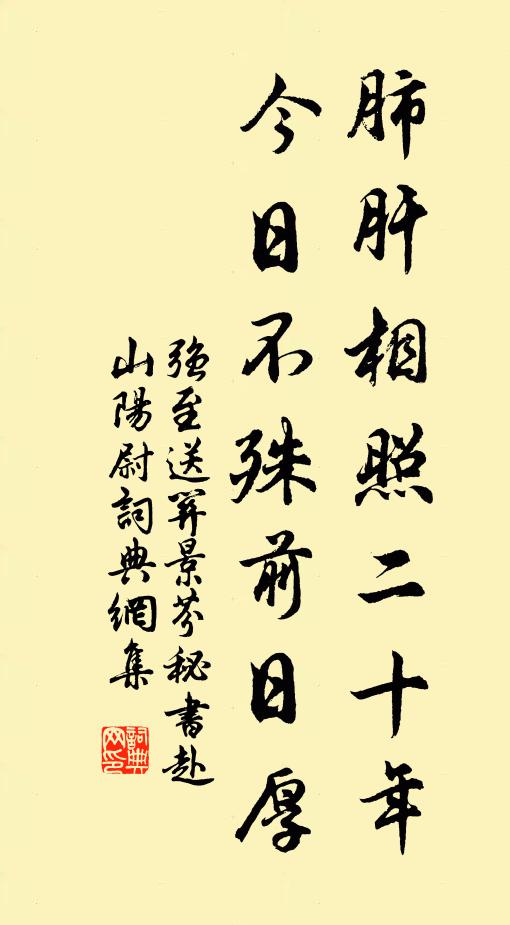 肺肝相照二十年
今日不殊前日厚
強至送羿景芬秘書赴
山陽尉詞典網集
詞典
网